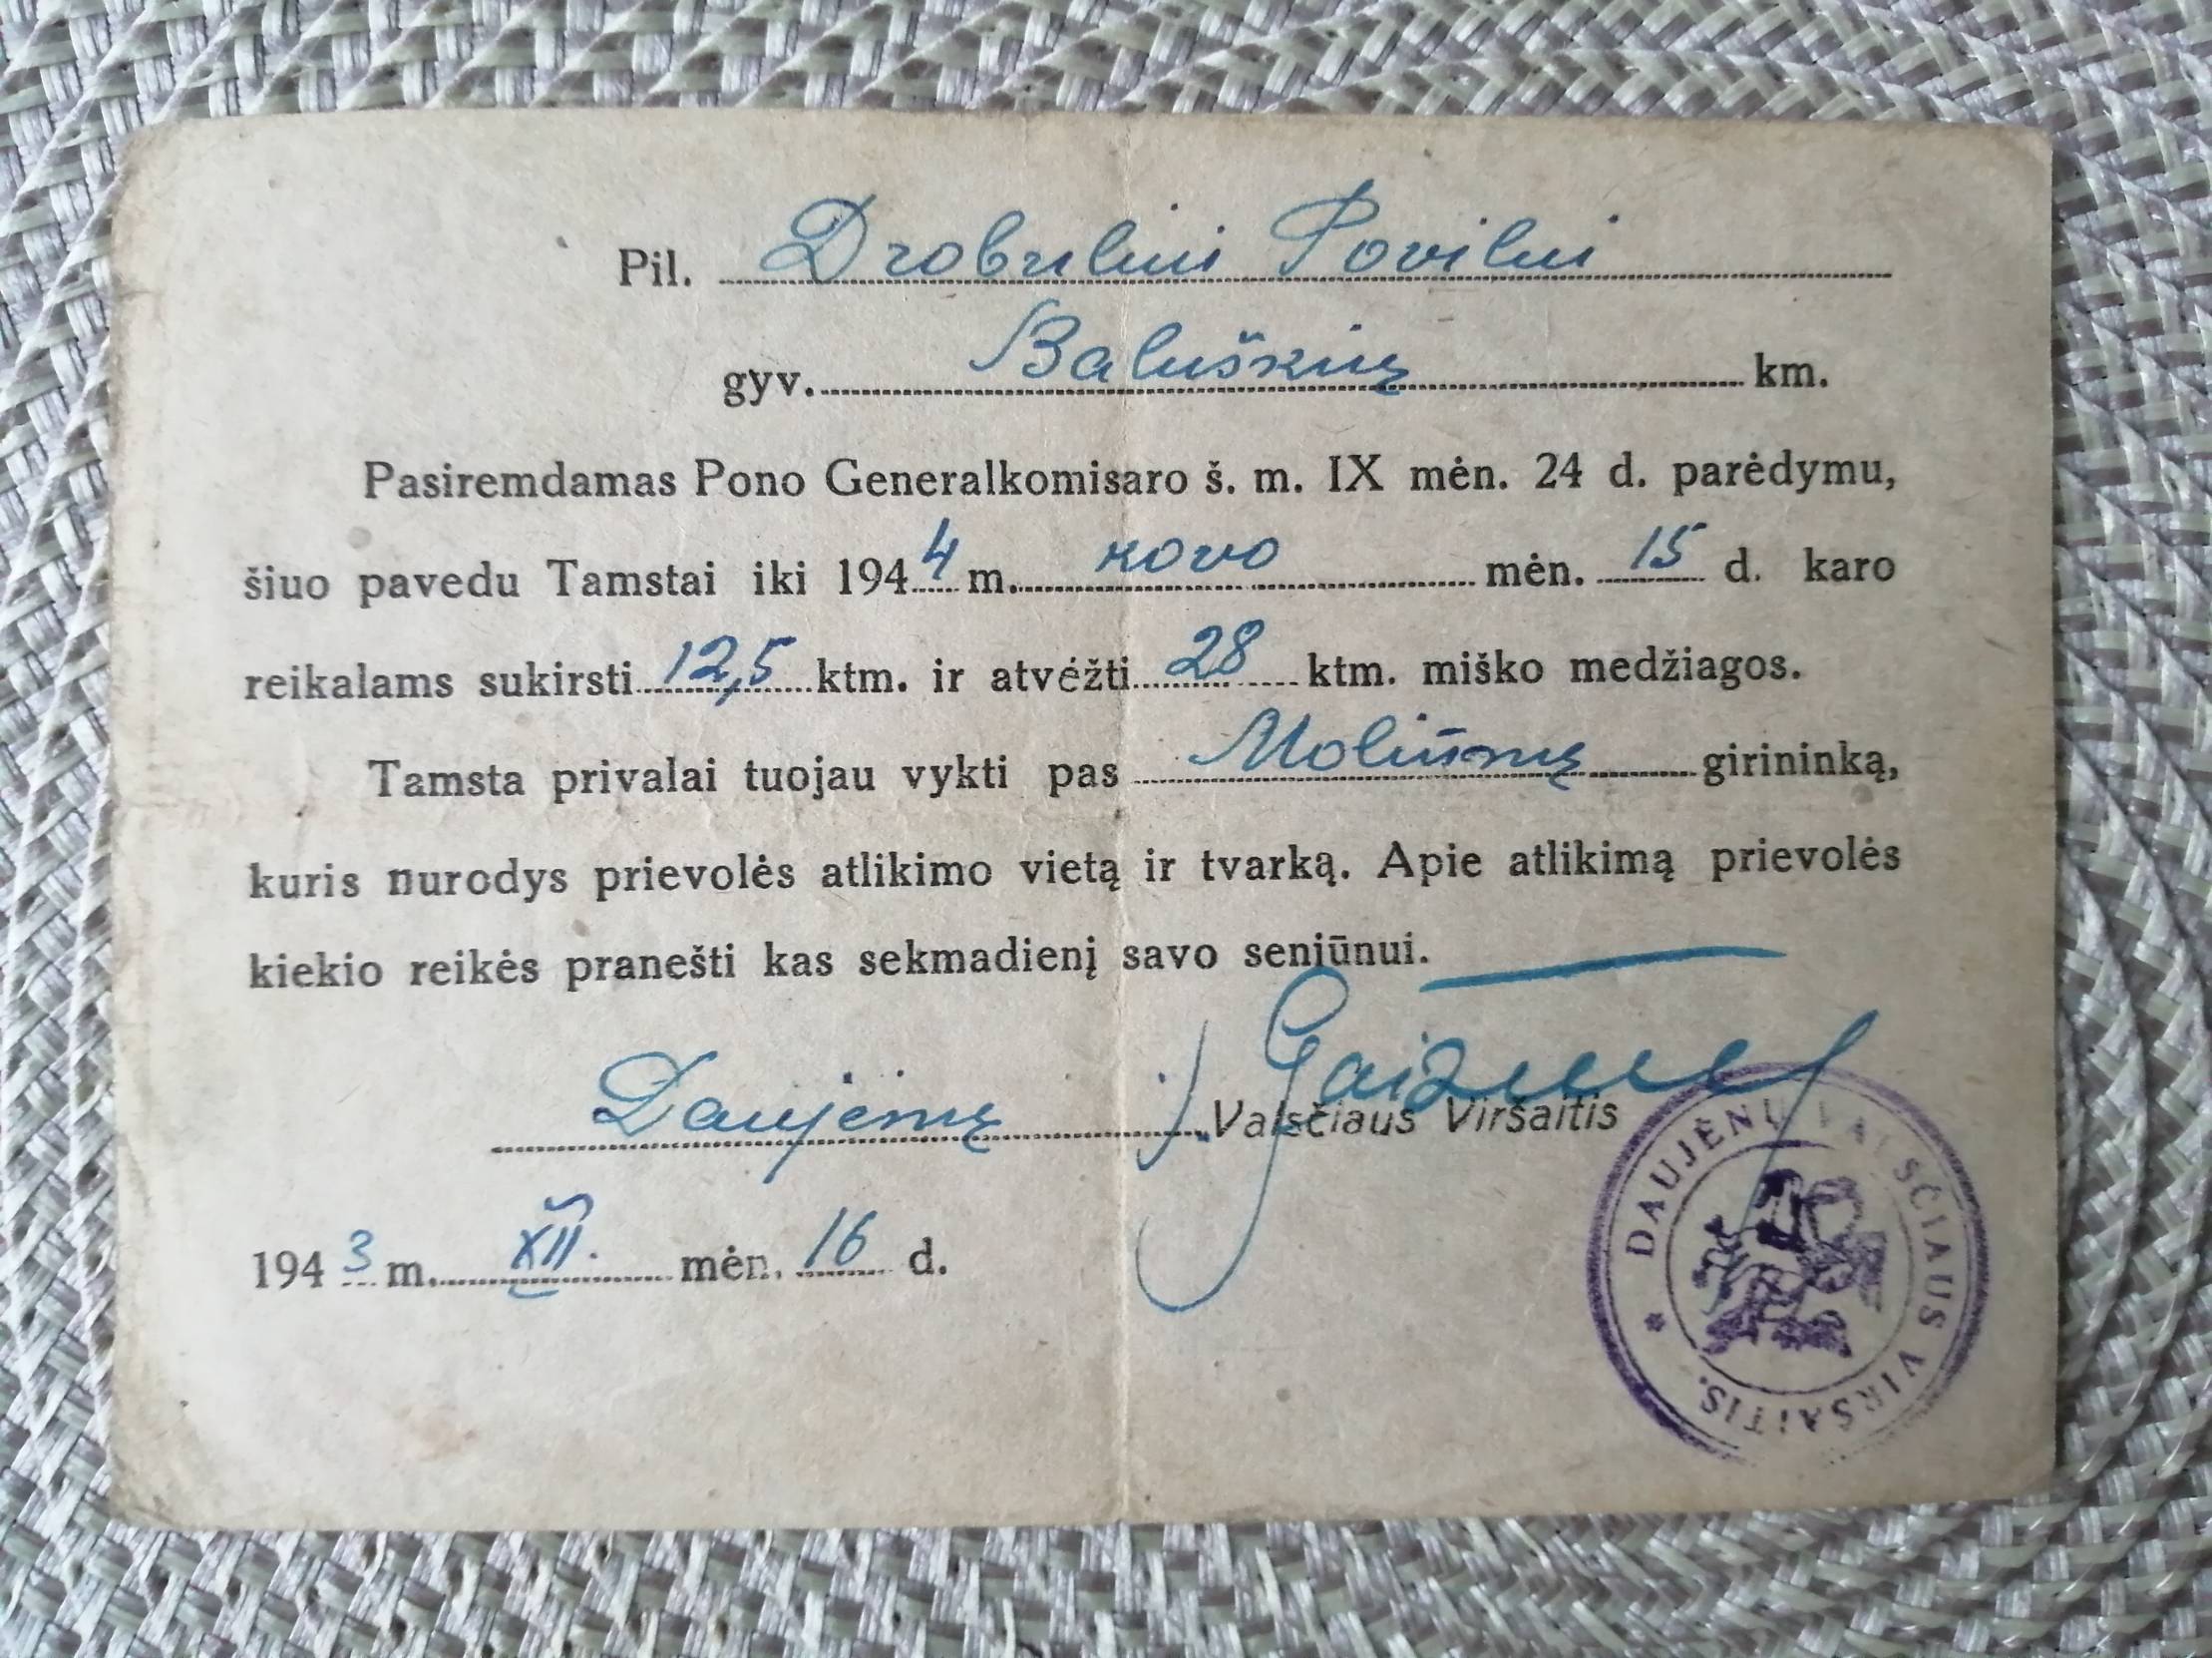 Pil. Drobuliui Povilui
gyv. Baluškių km.
Pasiremdamas Pono Generalkomisaro š. m. IX mėn. 24 d. parėdymu,
šiuo pavedu Tamstai iki 1944 m. kovo mėn. 15 d. karo
reikalams sukirsti 12,5 ktm. ir atvėžti 28 ktm. miško medžiagos.
Tamsta privalai tuojau vykti pas Moliūnų girininką,
kuris nurodys prievolės atlikimo vietą ir tvarką. Apie atlikimą prievolės
kiekio reikės pranešti kas sekmadienį savo seniūnui.
Daujėnų Valsčiaus Viršaitis
1943 m. XII. mėn. 16 d.
DAUJĖNŲ VALSČIAUS VIRŠAITIS.